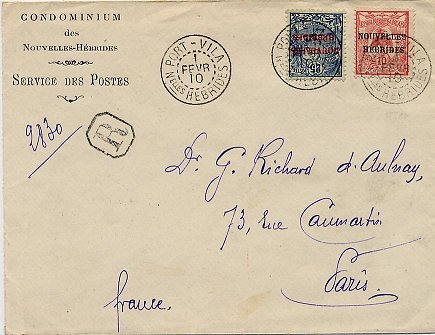 CONDOMINIUM
des
NOUVELLES-HÉBRIDES
SERVICE DES POSTES
PORT-VILA
FEVR
10
NLLES HÉBRIDES
NOUVELLES
HÉBRIDES
10
2830
R
Dr. G. Richard d'Aulnay,
73, rue Caumartin
Paris.
france.